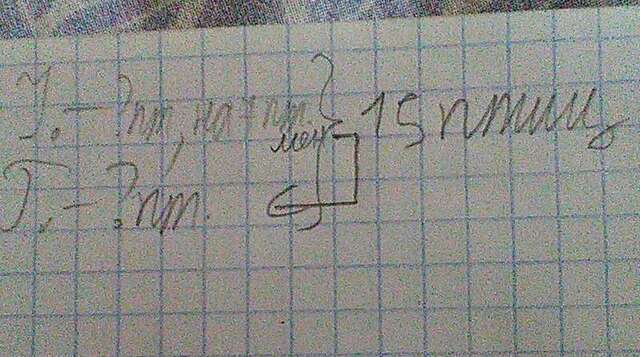 У. – ? пт, на 7 пт. } 15 птиц
мен
Т. – ? пт.